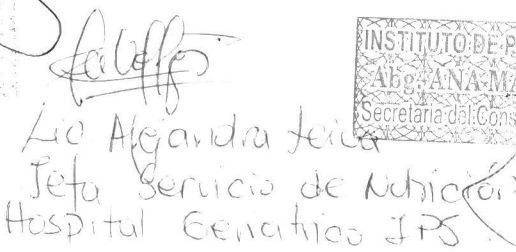 INSTITUTO DE P
Abg. ANA MA
Secretaria del Cons
Lic Alejandra
Jefa Servicio de Nutrición
Hospital Geriatrico IPS